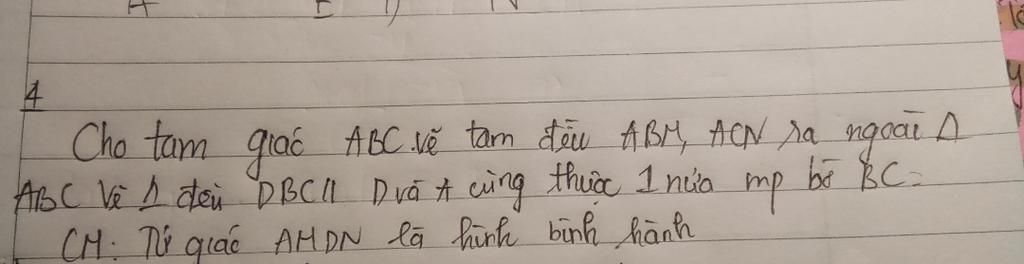 4
Cho tam giác ABC. Vẽ tam đều ABM, ACN ra ngoài Δ
ABC Vẽ Δ đều DBC D và A cùng thuộc 1 nửa mp bờ BC.
CM: Tứ giác AMDN là hình bình hành